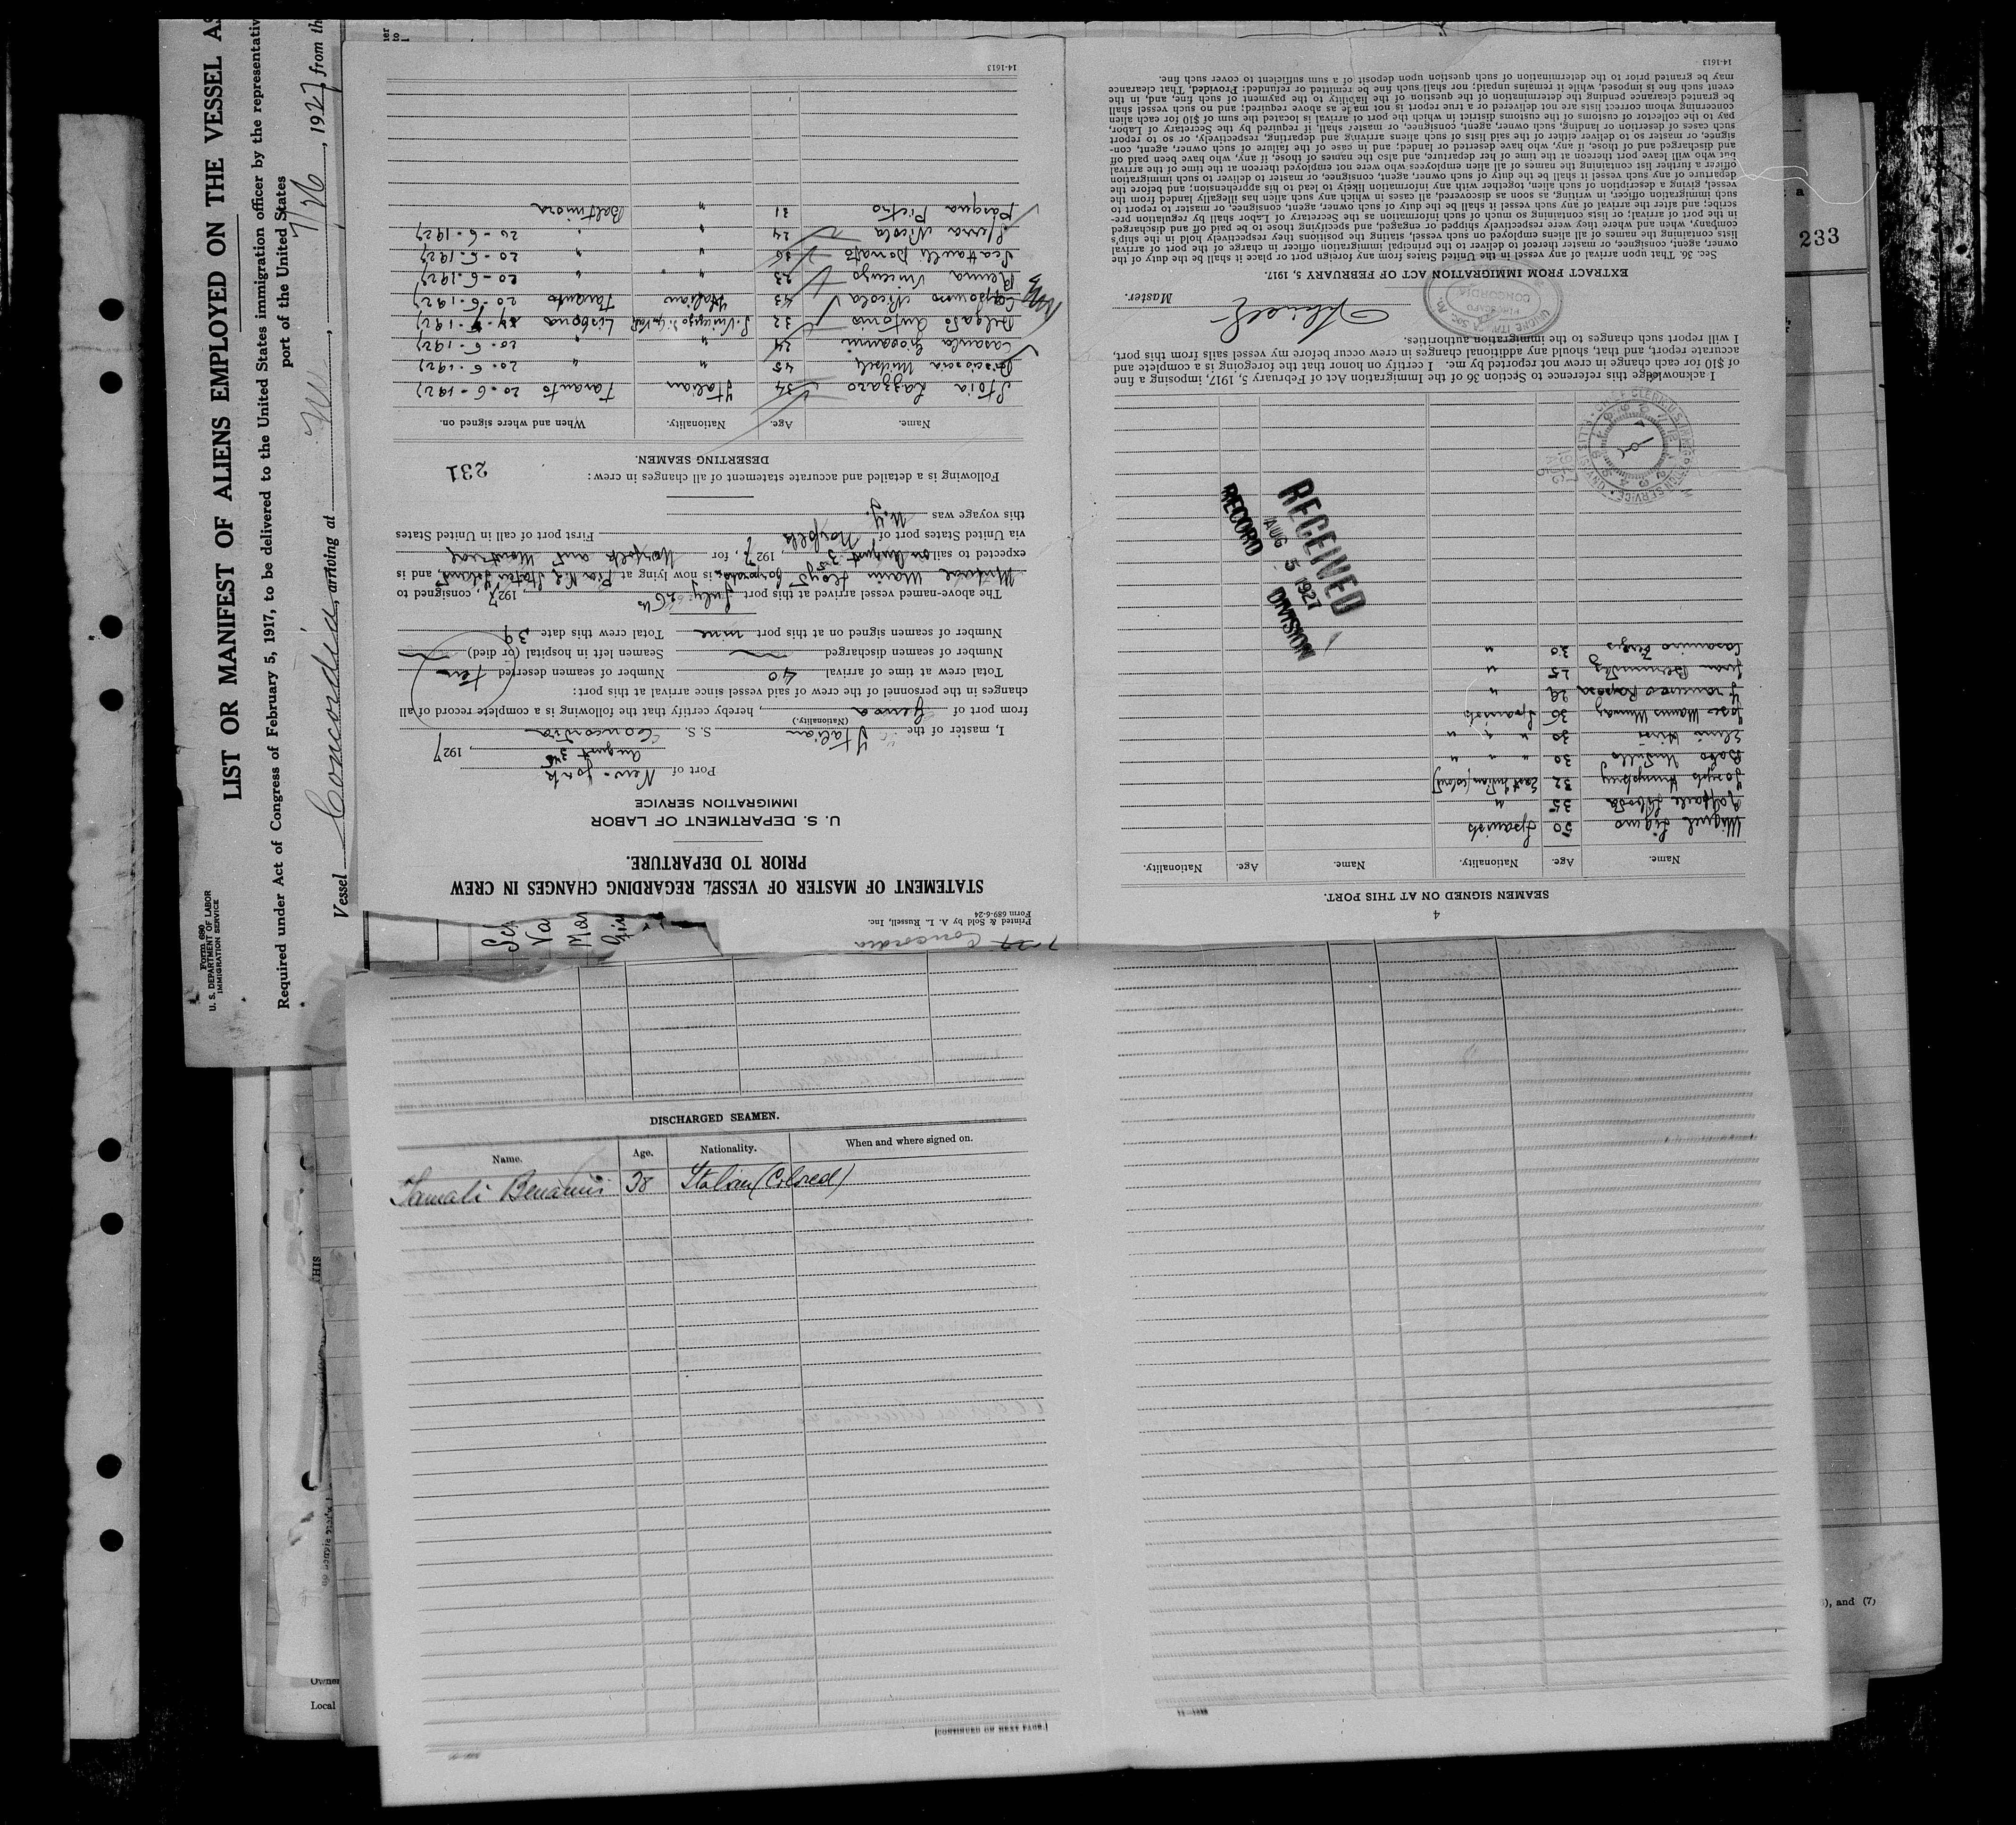 Form 680
U. S. DEPARTMENT OF LABOR
IMMIGRATION SERVICE
LIST OR MANIFEST OF ALIENS EMPLOYED ON THE VESSEL AS
Required under Act of Congress of February 5, 1917, to be delivered to the United States immigration officer by the representativ
port of the United States
Vessel Concordia, arriving at , 7/26, 1927, from th
7-27 Concordia
Printed & Sold by A. L. Russell, Inc.
Form 689-6-24
STATEMENT OF MASTER OF VESSEL REGARDING CHANGES IN CREW
PRIOR TO DEPARTURE.
U. S. DEPARTMENT OF LABOR
IMMIGRATION SERVICE
Port of New-York
August 3rd, 1927
I, master of the Italian S. S. Concordia
(Nationality.)
from port of Genoa, hereby certify that the following is a complete record of all
changes in the personnel of the crew of said vessel since arrival at this port:
Total crew at time of arrival 40 Number of seamen deserted ten
Number of seamen discharged Seamen left in hospital (or died)
Number of seamen signed on at this port nine Total crew this date 39
The above-named vessel arrived at this port July 26th, 1927, consigned to
is now lying at Pier No 2 Staten Island, and is
expected to sail on August 3rd, 1927, for Norfolk and Montreal
via United States port of Norfolk First port of call in United States
this voyage was N.Y.
Following is a detailed and accurate statement of all changes in crew: 231
DESERTING SEAMEN.
Name. Age. Nationality. When and where signed on.
Stoia Lazzaro 34 Italian Taranto 20-6-1927
45 " " 20-6-1927
Casaula Giovanni 24 " " 20-6-1927
Delgado Antonio 32 Lisbona
Capponso Nicola 43 Italian Taranto 20-6-1927
Renna Vincenzo 23 " " 20-6-1927
Scattarelli Donato 36 " " 20-6-1927
Serra Nicola 24 " " 20-6-1927
Pasqua Pietro 31 " Baltimora
14-1613
4
SEAMEN SIGNED ON AT THIS PORT.
Name. Age. Nationality. Name. Age. Nationality.
Miguel 50 Spanish
35 "
Joseph Humphrey 32 East Indian (colored)
30 " "
30 " "
Jose 36 Spanish
Raposa 29 "
Juan Bermudez 25 "
Casamiro 30 "
RECEIVED
AUG 5 1927
RECORD DIVISION
I acknowledge this reference to Section 36 of the Immigration Act of February 5, 1917, imposing a fine
of $10 for each change in crew not reported by me. I certify on honor that the foregoing is a complete and
accurate report, and that, should any additional changes in crew occur before my vessel sails from this port,
I will report such changes to the immigration authorities.
Master.
CONCORDIA
EXTRACT FROM IMMIGRATION ACT OF FEBRUARY 5, 1917.
Sec. 36. That upon arrival of any vessel in the United States from any foreign port or place it shall be the duty of the
owner, agent, consignee, or master thereof to deliver to the principal immigration officer in charge of the port of arrival
lists containing the names of all aliens employed on such vessel, stating the positions they respectively hold in the ship's
company, when and where they were respectively shipped or engaged, and specifying those to be paid off and discharged
in the port of arrival; or lists containing so much of such information as the Secretary of Labor shall by regulation pre-
scribe; and after the arrival of any such vessel it shall be the duty of such owner, agent, consignee, or master to report to
such immigration officer, in writing, as soon as discovered, all cases in which any such alien has illegally landed from the
vessel, giving a description of such alien, together with any information likely to lead to his apprehension; and before the
departure of any such vessel it shall be the duty of such owner, agent, consignee, or master to deliver to such immigration
officer a further list containing the names of all alien employees who were not employed thereon at the time of the arrival
but who will leave port thereon at the time of her departure, and also the names of those, if any, who have been paid off
and discharged and of those, if any, who have deserted or landed; and in case of the failure of such owner, agent, con-
signee, or master so to deliver either of the said lists of such aliens arriving and departing, respectively, or so to report
such cases of desertion or landing, such owner, agent, consignee, or master shall, if required by the Secretary of Labor,
pay to the collector of customs of the customs district in which the port of arrival is located the sum of $10 for each alien
concerning whom correct lists are not delivered or a true report is not made as above required; and no such vessel shall
be granted clearance pending the determination of the question of the liability to the payment of such fine, and, in the
event such fine is imposed, while it remains unpaid; nor shall such fine be remitted or refunded: Provided, That clearance
may be granted prior to the determination of such question upon deposit of a sum sufficient to cover such fine.
14-1613
233
DISCHARGED SEAMEN.
Name. Age. Nationality. When and where signed on.
38 Italian (Colored)
[CONTINUED ON NEXT PAGE.]
), and (7)
Owner
Local